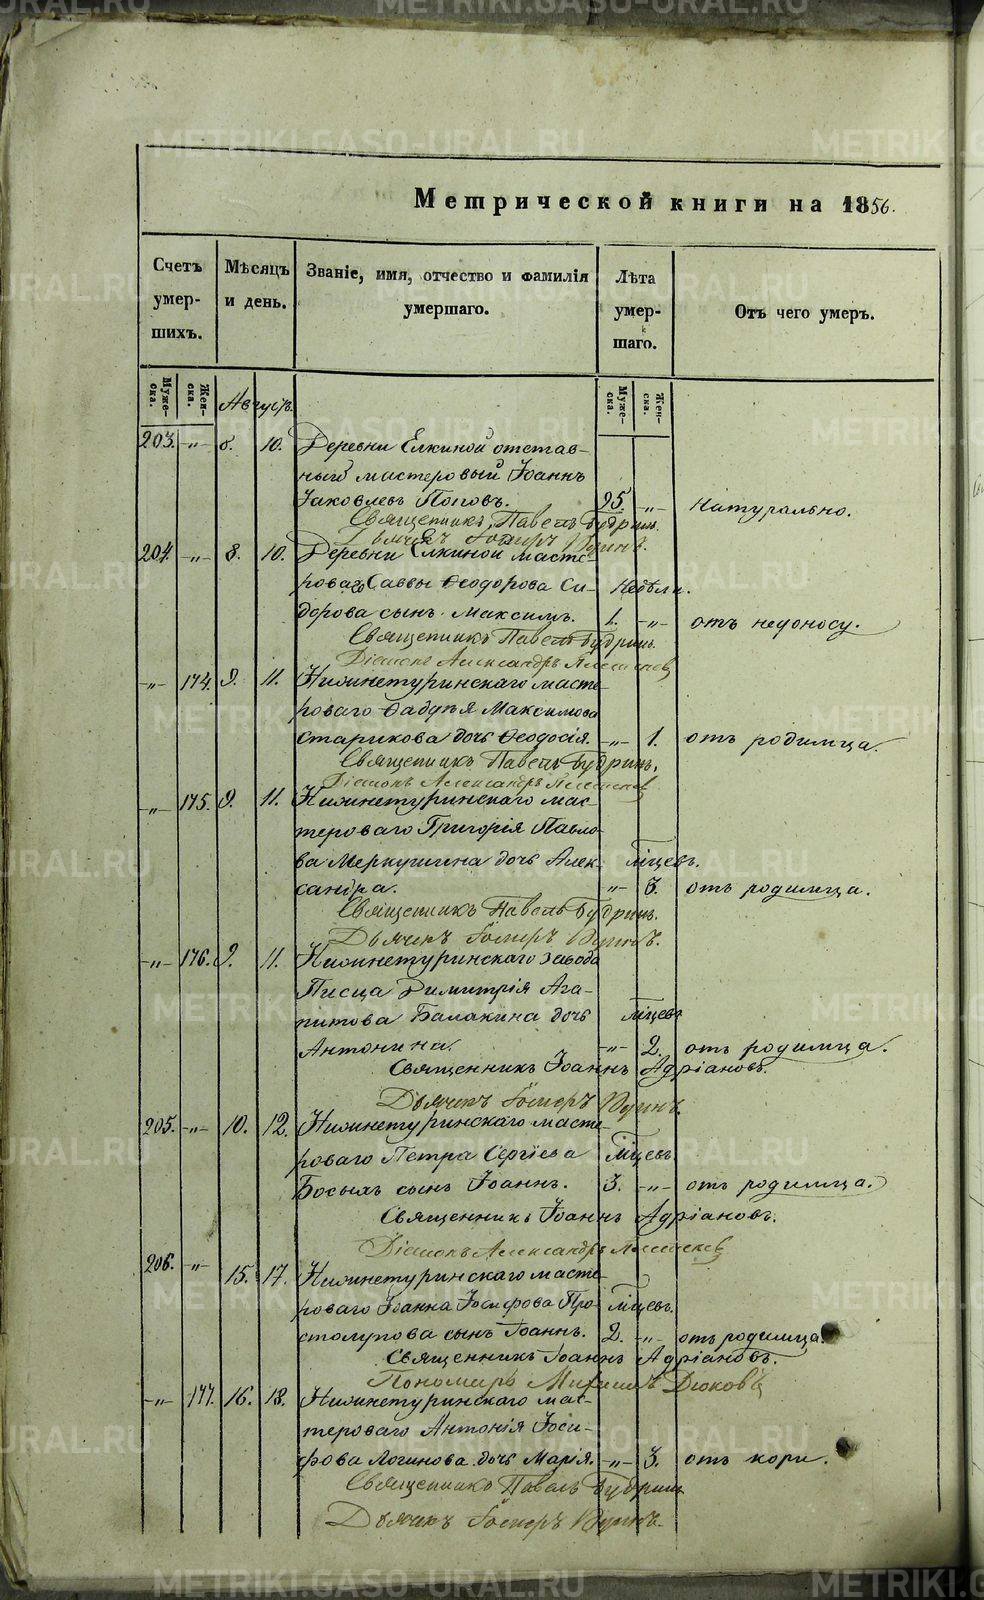 Метрической книги на 1856.
Счетъ умершихъ.
Мѣсяцъ и день.
Званіе, имя, отчество и фамилія умершаго.
Лѣта умершаго.
Отъ чего умеръ.
Мужеска. Женска. Августъ. Мужеска. Женска.
203. -„- 8. 10. Деревни Елкиной отстав-
ный мастеровый Іоаннъ
Іаковлевъ Поповъ. 95. -„- Натурально.
Священникъ Павелъ Будринъ.
Дьячекъ
204. -„- 8. 10. Деревни Елкиной масте-
роваго Саввы Ѳеодорова Си- Недѣли.
дорова сынъ Максимъ. 1. -„- отъ недоносу.
Священникъ Павелъ Будринъ.
Діаконъ Александръ
-„- 174. 9. 11. Нижнетуринскаго масте-
роваго Ѳаддѣя Максимова
Старикова дочь Ѳеодосія. -„- 1. отъ родимца.
Священникъ Павелъ Будринъ.
Діаконъ Александръ
-„- 175. 9. 11. Нижнетуринскаго мас-
тероваго Григорія Павло-
ва Меркушина дочь Алек- Міцевъ.
сандра. -„- 3. отъ родимца.
Священникъ Павелъ Будринъ.
Дьячекъ
-„- 176. 9. 11. Нижнетуринскаго завода
Писца Димитрія Ага-
питова Балакина дочь Міцевъ
Антонина. -„- 2. отъ родимца.
Священникъ Іоаннъ Адріановъ.
Дьячекъ
205. -„- 10. 12. Нижнетуринскаго масте-
роваго Петра Сергіева Міцевъ
Босыхъ сынъ Іоаннъ. 3. -„- отъ родимца.
Священникъ Іоаннъ Адріановъ.
Діаконъ Александръ
206. -„- 15. 17. Нижнетуринскаго масте-
роваго Іоанна Іосифова Про- Міцевъ.
столупова сынъ Іоаннъ. 2. -„- отъ родимца.
Священникъ Іоаннъ Адріановъ.
Пономарь Михаилъ Дюковъ
-„- 177. 16. 18. Нижнетуринскаго мас-
тероваго Антонія Іоси-
фова Логинова дочь Марія. -„- 3. отъ кори.
Священникъ Павелъ Будринъ
Дьячекъ
METRIKI.GASO-URAL.RU